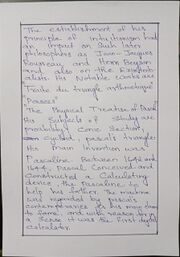 The establishment of his
principle of intuitionism had
an impact on such later
philosophers as Jean-Jacques
Rousseau and Henri Bergson
and also on the
alists His Notable works are
Traite du triangle arithmetique
Posses"
The Physical Treatise of Pascal
His Subjects of Study are
probability conic Section,
cycloid, pascal's triangle
His main invention was
Pascaline Between 1642 and
1644, Pascal Conceived and
Constructed a Calculating
device, the Pascaline to
help his father. The machine
was regarded by pascal's
contemporaries his main claim
to fame, and with reason for in
a sense it was the first digital
calculator.